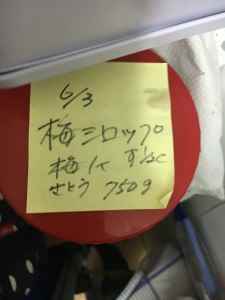 6/3
梅シロップ
梅 1K
さとう 750g